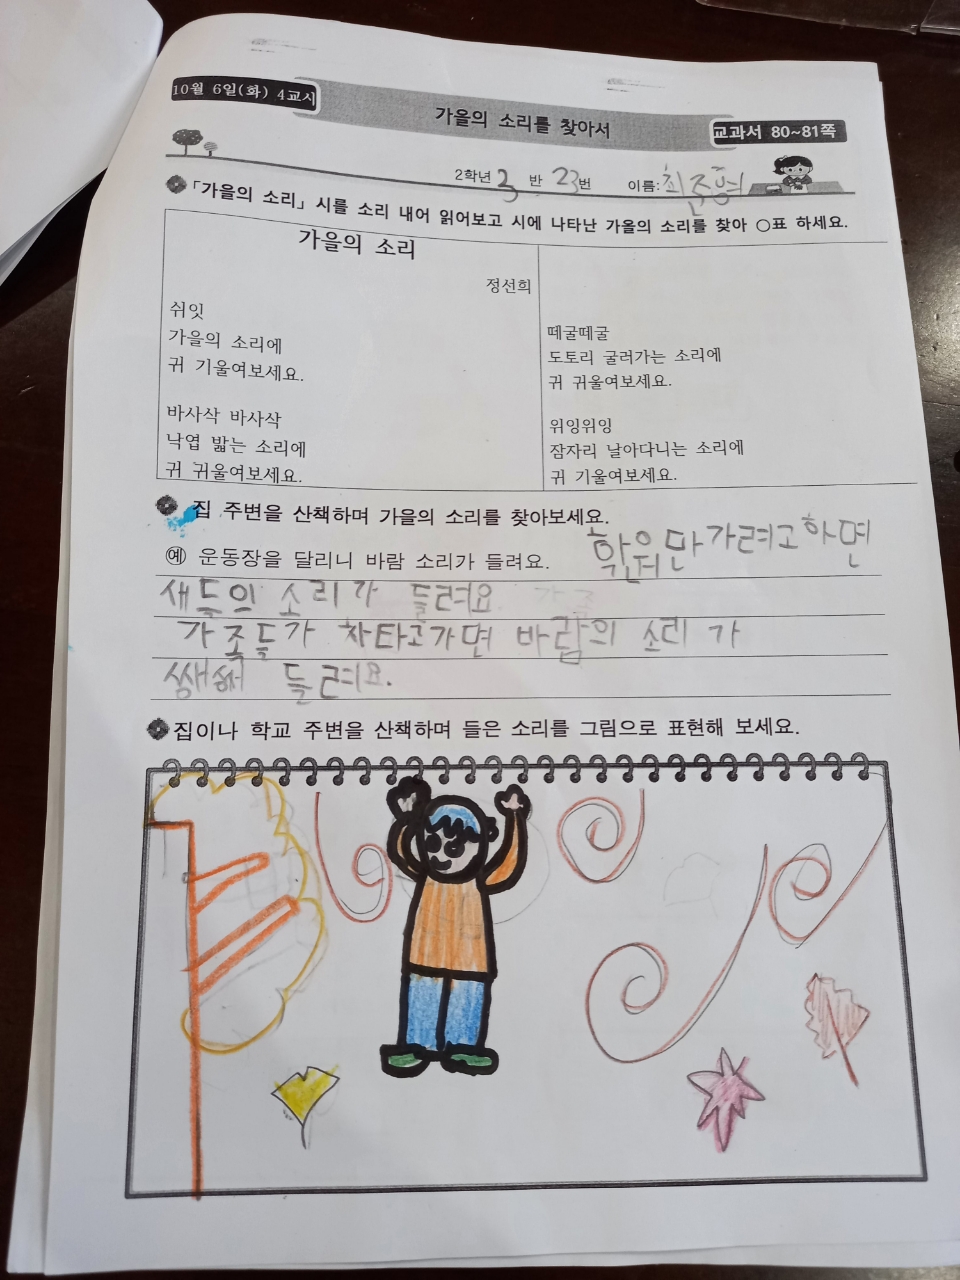 10월 6일(화) 4교시
가을의 소리를 찾아서
교과서 80~81쪽
2학년 3 반 23번 이름: 최준형
「가을의 소리」 시를 소리 내어 읽어보고 시에 나타난 가을의 소리를 찾아 ○표 하세요.
가을의 소리
정선희
쉬잇
가을의 소리에
귀 기울여보세요.
바사삭 바사삭
낙엽 밟는 소리에
귀 귀울여보세요.
떼굴떼굴
도토리 굴러가는 소리에
귀 귀울여보세요.
위잉위잉
잠자리 날아다니는 소리에
귀 기울여보세요.
집 주변을 산책하며 가을의 소리를 찾아보세요.
예 운동장을 달리니 바람 소리가 들려요.
학원만가려고하면
새들의 소리가 들려요
가족들가 차타고가면 바람의 소리가
쌩쌩 들려요.
집이나 학교 주변을 산책하며 들은 소리를 그림으로 표현해 보세요.